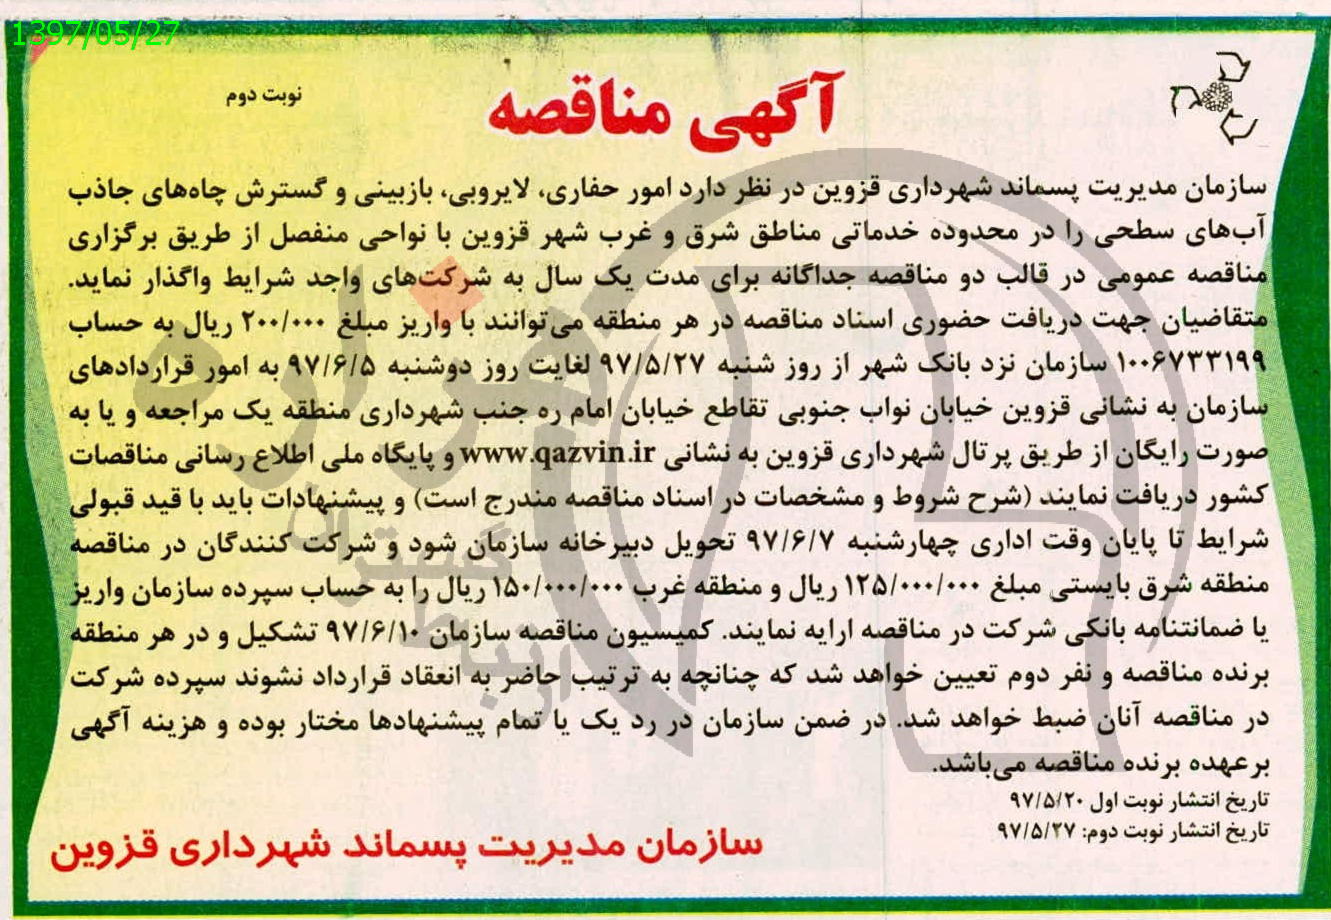 1397/05/27
آگهی مناقصه
نوبت دوم
سازمان مدیریت پسماند شهرداری قزوین در نظر دارد امور حفاری، لایروبی، بازبینی و گسترش چاه‌های جاذب
آب‌های سطحی را در محدوده خدماتی مناطق شرق و غرب شهر قزوین با نواحی منفصل از طریق برگزاری
مناقصه عمومی در قالب دو مناقصه جداگانه برای مدت یک سال به شرکت‌های واجد شرایط واگذار نماید.
متقاضیان جهت دریافت حضوری اسناد مناقصه در هر منطقه می‌توانند با واریز مبلغ ۲۰۰/۰۰۰ ریال به حساب
۱۰۰۶۷۳۳۱۹۹ سازمان نزد بانک شهر از روز شنبه ۹۷/۵/۲۷ لغایت روز دوشنبه ۹۷/۶/۵ به امور قراردادهای
سازمان به نشانی قزوین خیابان نواب جنوبی تقاطع خیابان امام ره جنب شهرداری منطقه یک مراجعه و یا به
صورت رایگان از طریق پرتال شهرداری قزوین به نشانی www.qazvin.ir و پایگاه ملی اطلاع رسانی مناقصات
کشور دریافت نمایند (شرح شروط و مشخصات در اسناد مناقصه مندرج است) و پیشنهادات باید با قید قبولی
شرایط تا پایان وقت اداری چهارشنبه ۹۷/۶/۷ تحویل دبیرخانه سازمان شود و شرکت کنندگان در مناقصه
منطقه شرق بایستی مبلغ ۱۲۵/۰۰۰/۰۰۰ ریال و منطقه غرب ۱۵۰/۰۰۰/۰۰۰ ریال را به حساب سپرده سازمان واریز
یا ضمانتنامه بانکی شرکت در مناقصه ارایه نمایند. کمیسیون مناقصه سازمان ۹۷/۶/۱۰ تشکیل و در هر منطقه
برنده مناقصه و نفر دوم تعیین خواهد شد که چنانچه به ترتیب حاضر به انعقاد قرارداد نشوند سپرده شرکت
در مناقصه آنان ضبط خواهد شد. در ضمن سازمان در رد یک یا تمام پیشنهادها مختار بوده و هزینه آگهی
برعهده برنده مناقصه می‌باشد.
تاریخ انتشار نوبت اول ۹۷/۵/۲۰
تاریخ انتشار نوبت دوم: ۹۷/۵/۲۷
سازمان مدیریت پسماند شهرداری قزوین